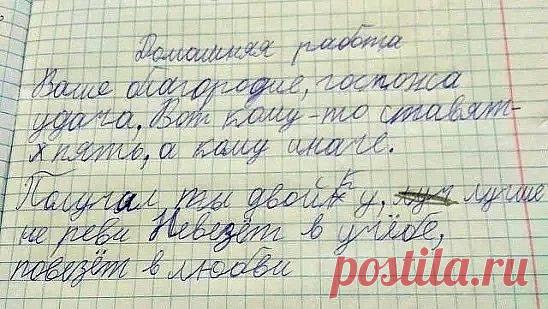 Домашняя работа
Ваше благородие, госпожа
удача, Вот кому-то ставят-
х пять, а кому иначе.
Палучал ты двойку, луч лучше
не реви Невезёт в учёбе,
повезёт в любви
postila.ru